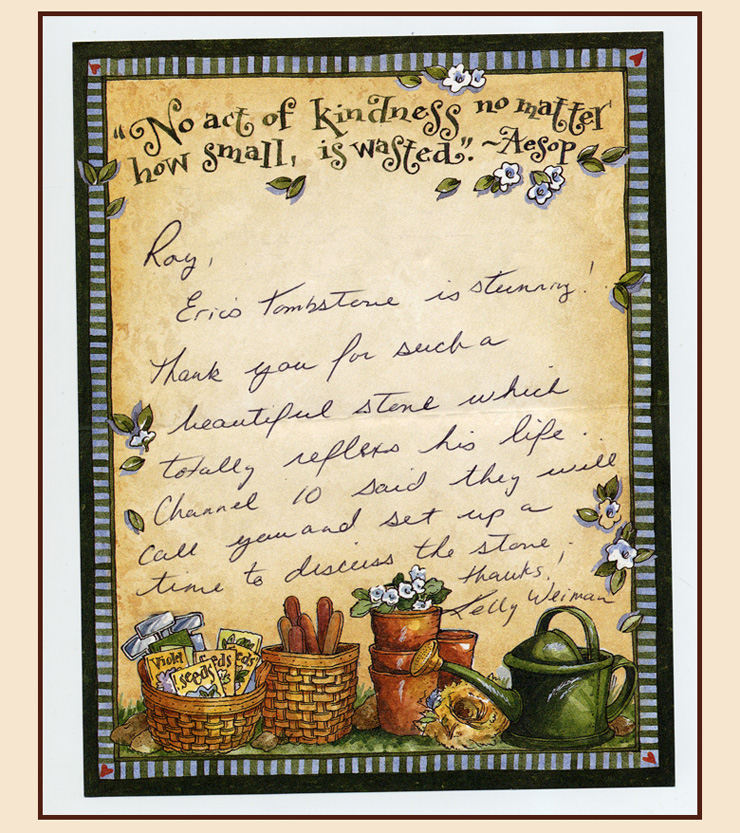 "No act of kindness no matter
how small, is wasted". ~Aesop
Roy,
Erics Tombstone is stunning!
Thank you for such a
beautiful stone which
totally reflexs his life.
Channel 10 said they will
call you and set up a
time to discuss the stone.
Thanks,
Kelly Weiman
Violet
seeds
eds
eds